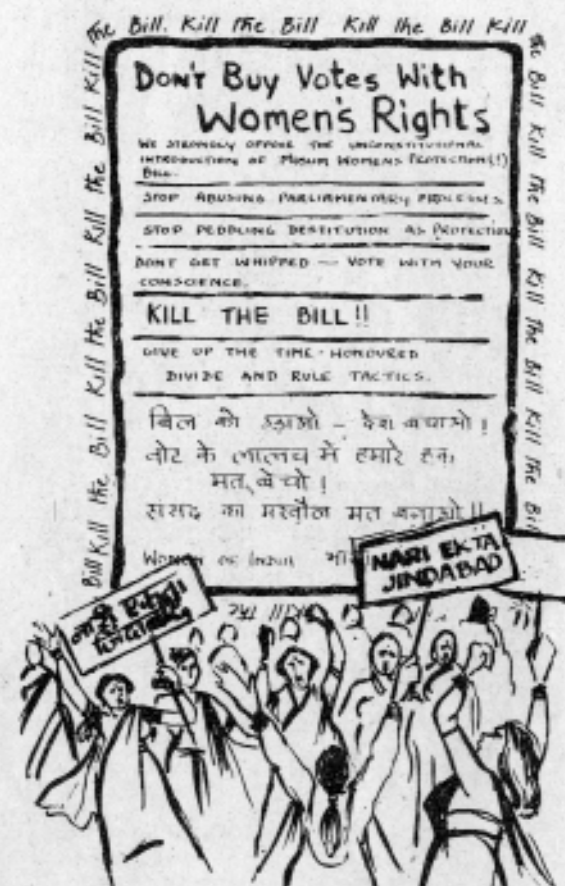 the Bill. Kill the Bill Kill the Bill Kill
the Bill Kill the Bill Kill the Bill Kill the Bi
Bill Kill the Bill Kill the Bill Kill the Bill Kill
DON'T BUY VOTES WITH
WOMEN'S RIGHTS
WE STRONGLY OPPOSE THE UNCONSTITUTIONAL
INTRODUCTION OF MUSLIM WOMENS PROTECTION(!)
BILL.
STOP ABUSING PARLIAMENTARY PROCESSES.
STOP PEDDLING DESTITUTION AS PROTECTION
DONT GET WHIPPED — VOTE WITH YOUR
CONSCIENCE.
KILL THE BILL!!
GIVE UP THE TIME-HONOURED
DIVIDE AND RULE TACTICS.
बिल को उड़ाओ - देश बचाओ !
वोट के लालच में हमारे हक
मत बेचो !
संसद का मखौल मत बनाओ !!
WOMEN OF INDIA
NARI EKTA
JINDABAD
नारी एकता